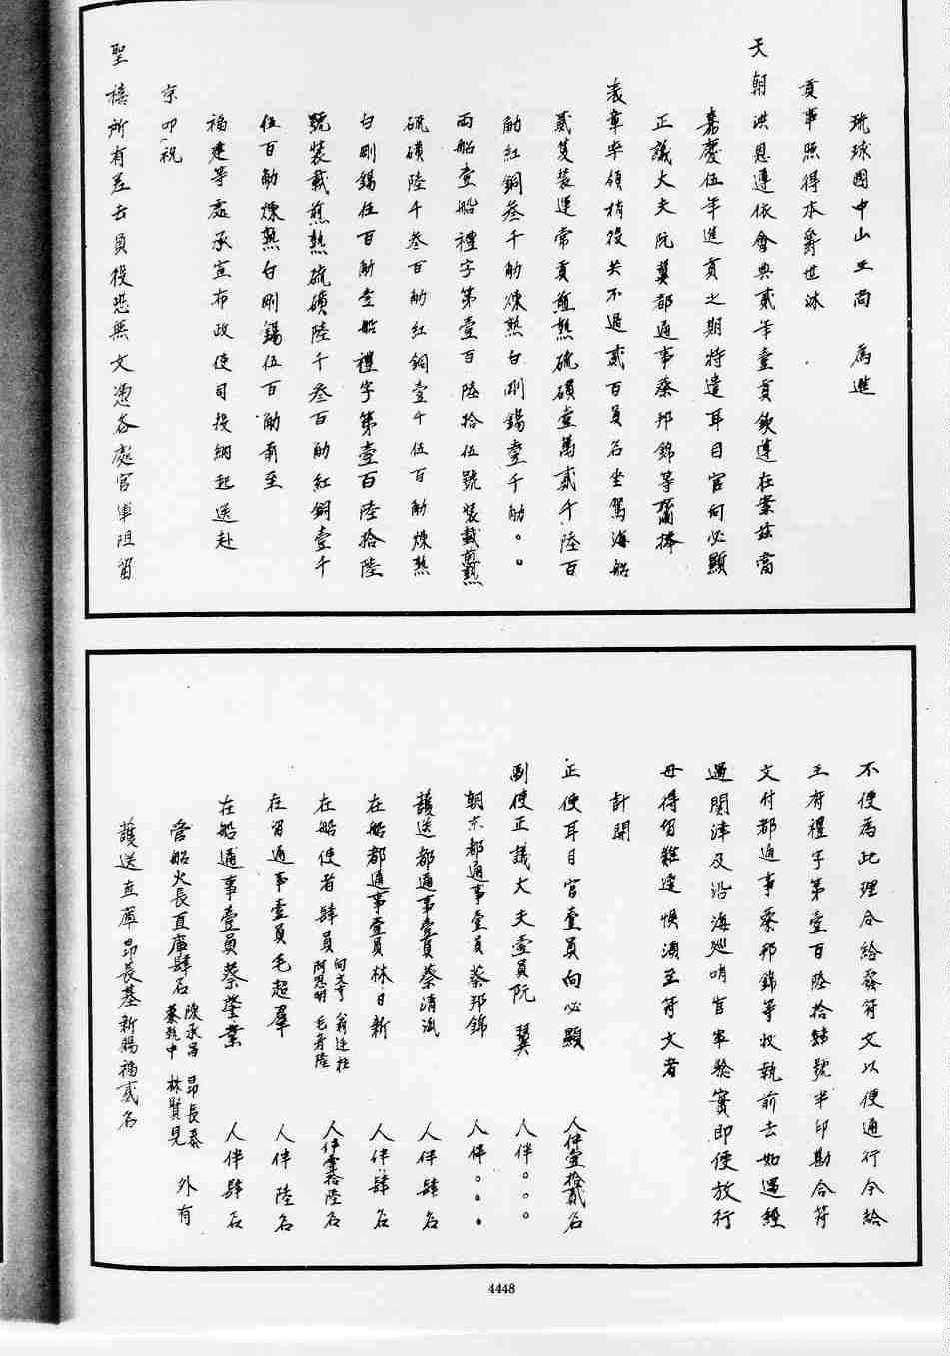 琉球國中山王尚　為進
貢事照得本爵世沐
天朝洪恩遵依會典貳年壹貢欽遵在案茲當
嘉慶伍年進貢之期特遣耳目官向必顯
正議大夫阮翼都通事蔡邦錦等齎捧
表章率領梢役共不過貳百員名坐駕海船
貳隻裝運常貢煎熟硫磺壹萬貳千陸百
觔紅銅叁千觔煉熟白剛錫壹千觔。。
兩船壹船禮字第壹百陸拾伍號裝載煎熟
硫磺陸千叁百觔紅銅壹千伍百觔煉熟
白剛錫伍百觔壹船禮字第壹百陸拾陸
號裝載煎熟硫磺陸千叁百觔紅銅壹千
伍百觔煉熟白剛錫伍百觔前至
福建等處承宣布政使司投納起送赴
京叩祝
聖禧所有差去員役恐無文憑各處官軍阻留
不便為此理合給發符文以便通行今給
王府禮字第壹百陸拾肆號半印勘合符
文付都通事蔡邦錦等收執前去如遇經
過關津及沿海巡哨官軍驗實即便放行
毋得留難遲悞須至符文者
計開
正使耳目官壹員向必顯　人伴壹拾貳名
副使正議大夫壹員阮　翼　人伴。。。
朝京都通事壹員蔡邦錦　人伴。。。
護送都通事壹員蔡清　人伴肆名
在船都通事壹員林日新　人伴肆名
在船使者肆員　向文亨　翁廷柱　阿思明　毛身陸　人伴壹拾陸名
在留通事壹員毛超羣　人伴陸名
在船通事壹員蔡肇業　人伴肆名
管船火長直庫肆名　陳承昌　昂長泰　蔡乾中　林賢見　外有
護送直庫昂長基新賜福貳名
4448